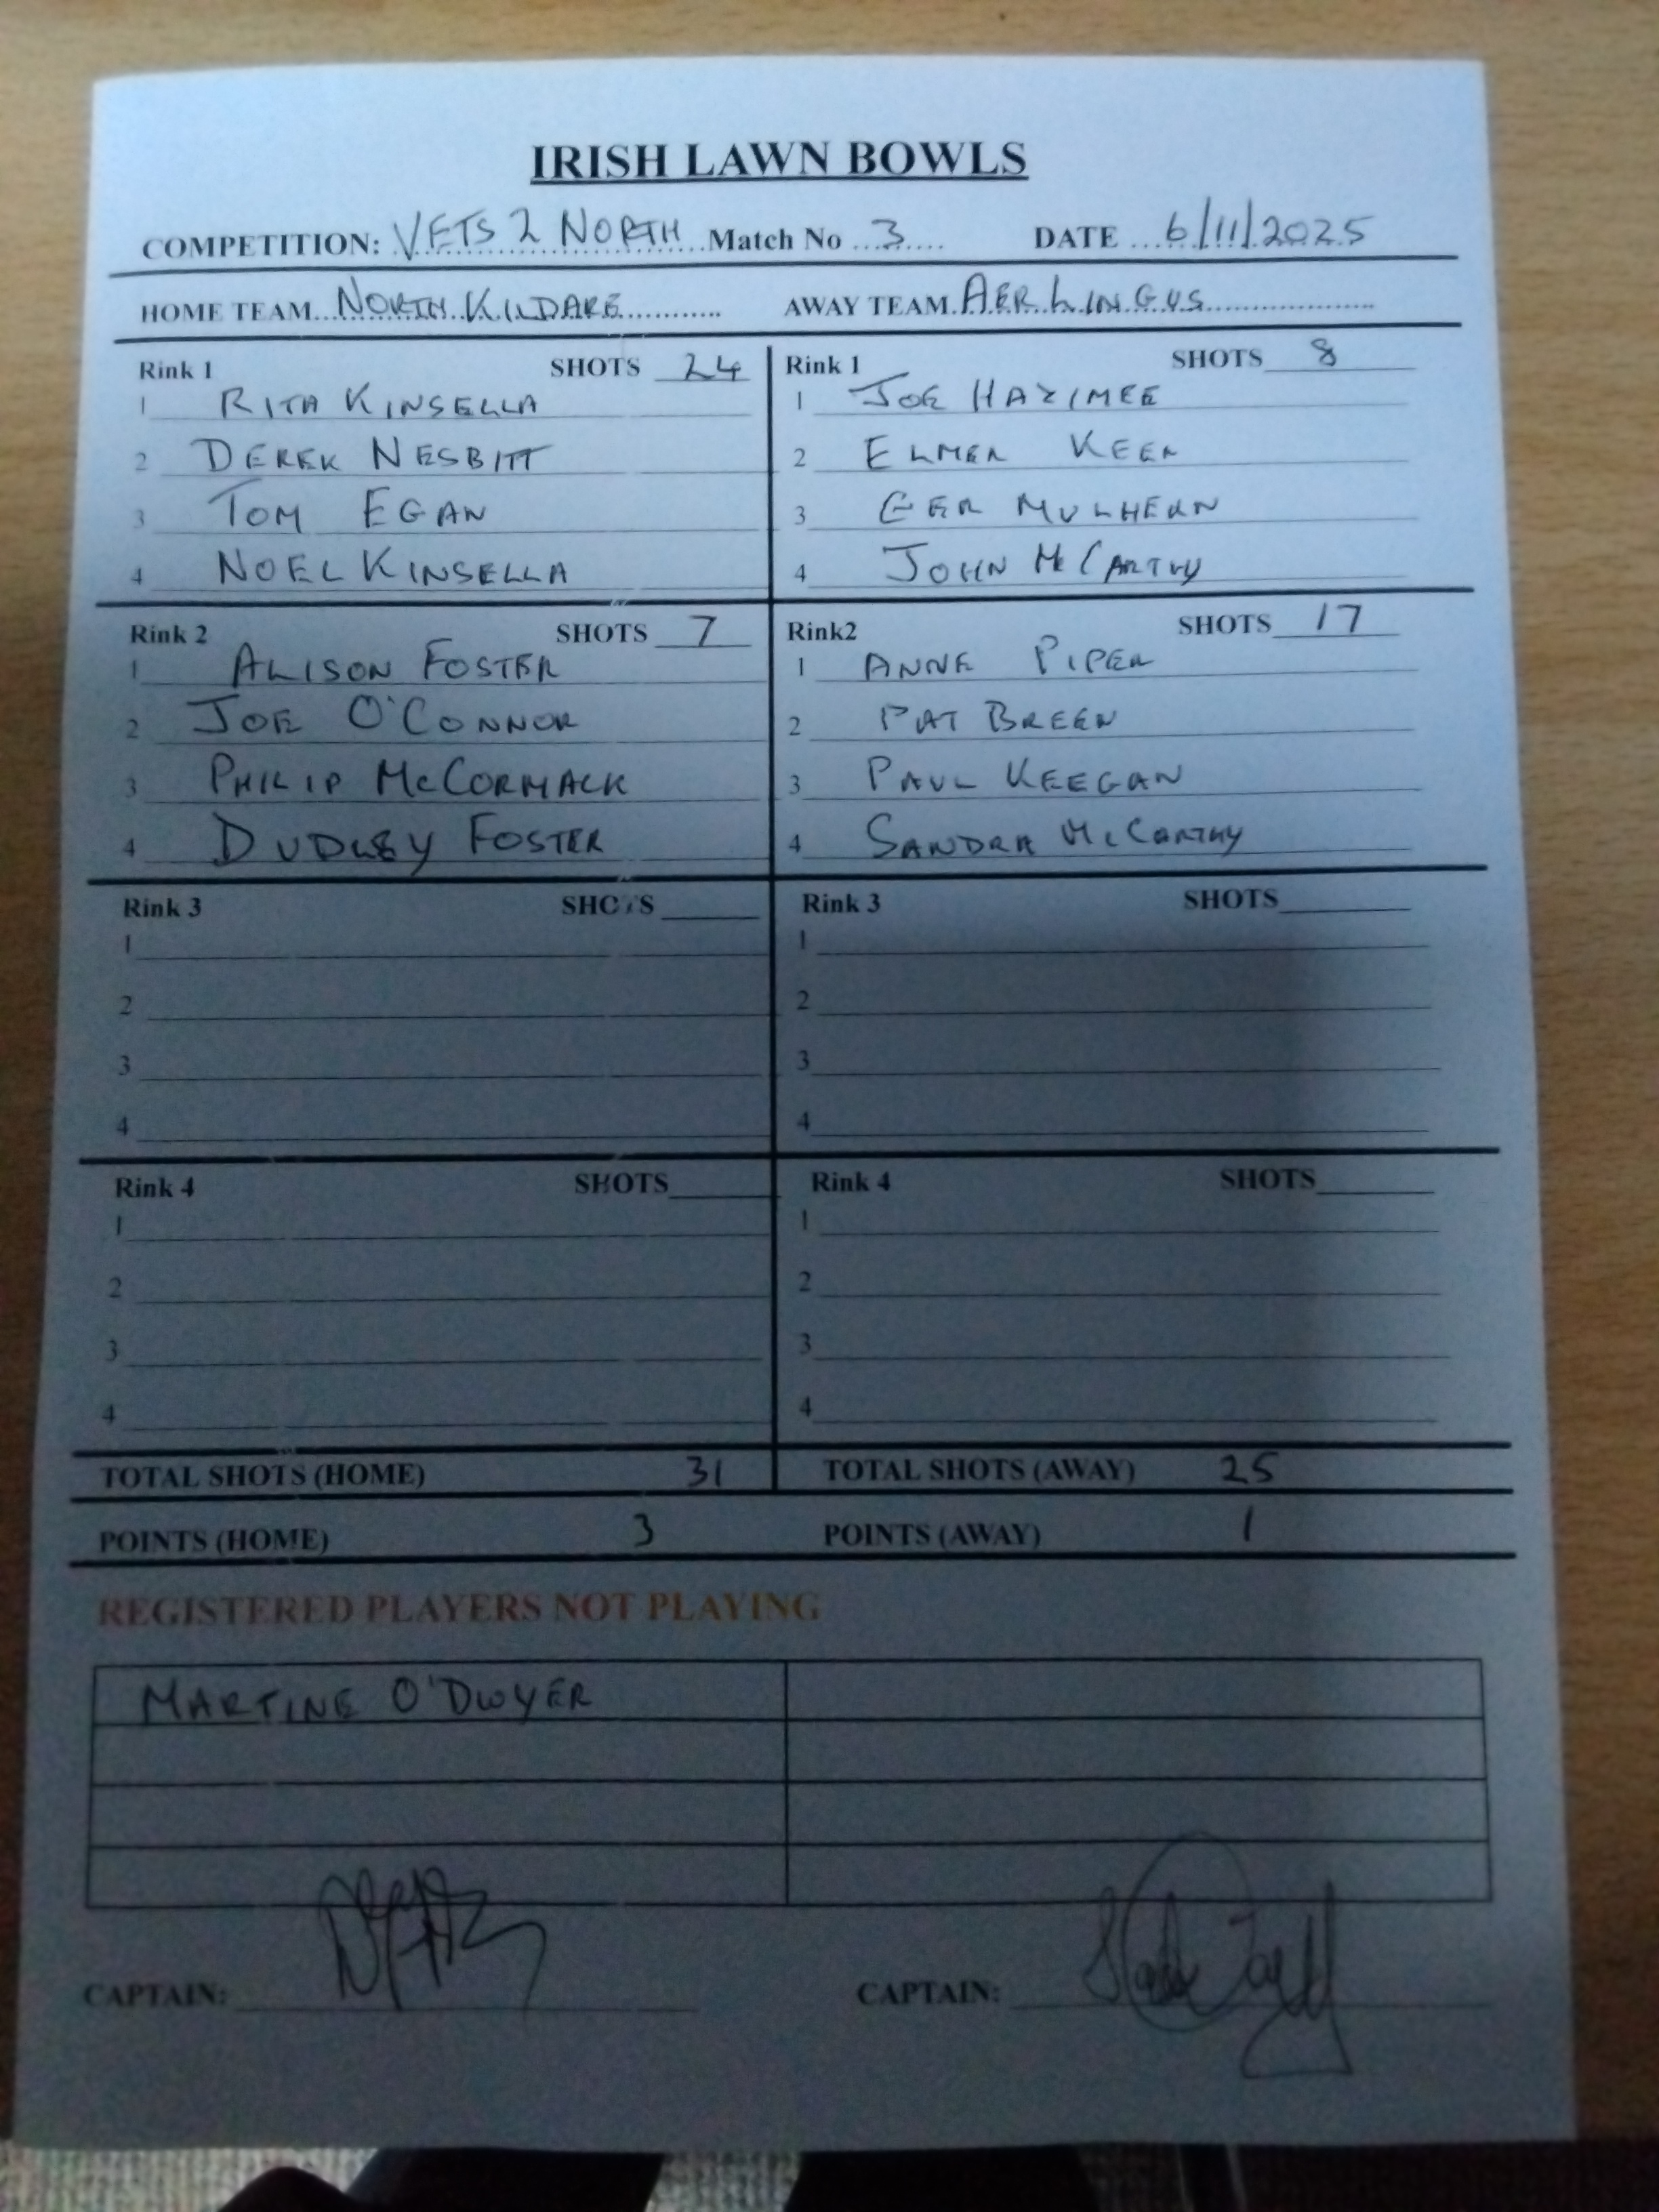 IRISH LAWN BOWLS
COMPETITION: VETS 2 NORTH Match No 3 DATE 6/11/2025
HOME TEAM NORTH KILDARE AWAY TEAM AER LINGUS
Rink 1 SHOTS 24
1 RITA KINSELLA
2 DEREK NESBITT
3 TOM EGAN
4 NOEL KINSELLA
Rink 1 SHOTS 8
1 JOE
2 ELMER KEER
3 GER MULHERN
4 JOHN McCARTHY
Rink 2 SHOTS 7
1 ALISON FOSTER
2 JOE O'CONNOR
3 PHILIP McCORMACK
4 DUDLEY FOSTER
Rink2 SHOTS 17
1 ANNE PIPER
2 PAT BREEN
3 PAUL KEEGAN
4 SANDRA McCARTHY
Rink 3 SHOTS
1
2
3
4
Rink 3 SHOTS
1
2
3
4
Rink 4 SHOTS
1
2
3
4
Rink 4 SHOTS
1
2
3
4
TOTAL SHOTS (HOME) 31 TOTAL SHOTS (AWAY) 25
POINTS (HOME) 3 POINTS (AWAY) 1
REGISTERED PLAYERS NOT PLAYING
MARTINE O'DWYER
CAPTAIN: CAPTAIN: